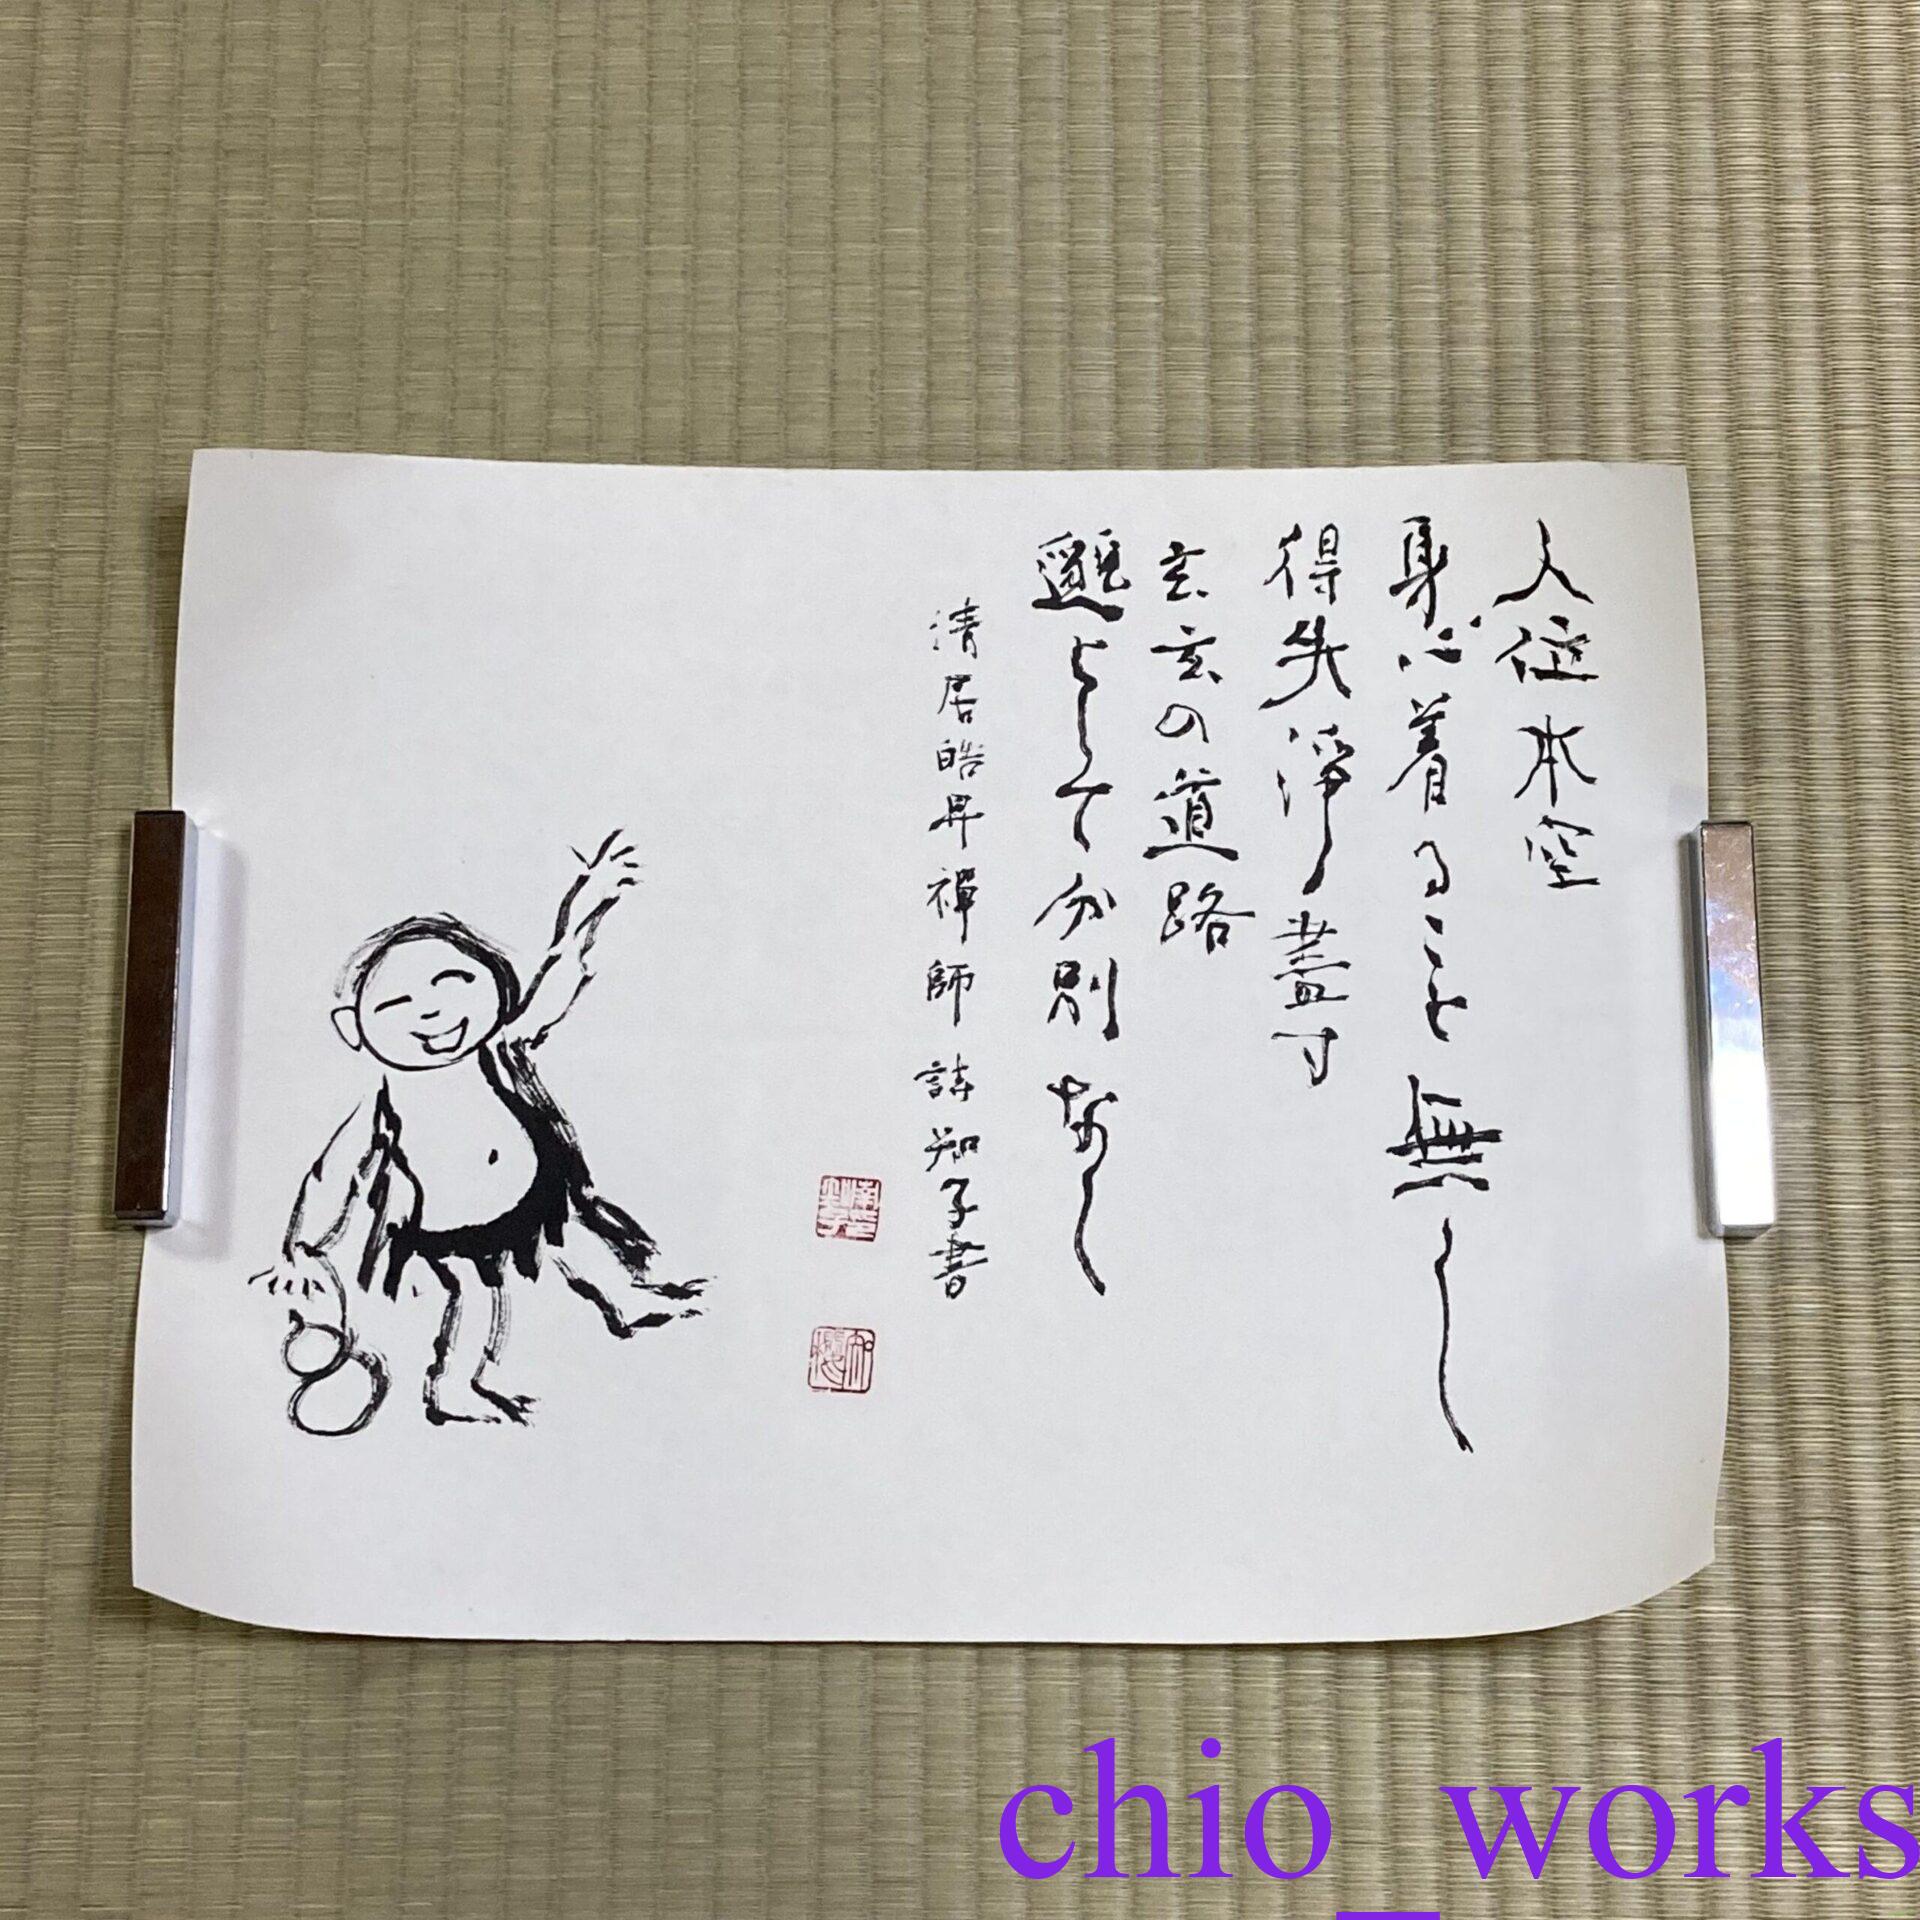 人位本空
身心着ること無し
得失浄し盡寸
玄玄の道路
邈として分別なし
清居皓昇禅師詩知子書
chio_works